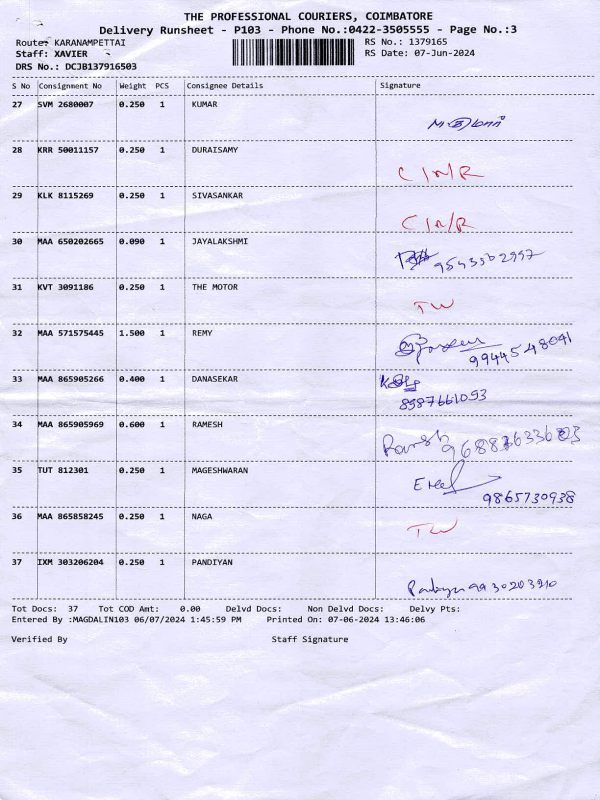 THE PROFESSIONAL COURIERS, COIMBATORE
Delivery Runsheet - P103 - Phone No.:0422-3505555 - Page No.:3
Route: KARANAMPETTAI RS No.: 1379165
Staff: XAVIER RS Date: 07-Jun-2024
DRS No.: DCJB137916503
S No Consignment No Weight PCS Consignee Details Signature
27 SVM 2680007 0.250 1 KUMAR
28 KRR 50011157 0.250 1 DURAISAMY
C/N/R
29 KLK 8115269 0.250 1 SIVASANKAR
C/N/R
30 MAA 650202665 0.090 1 JAYALAKSHMI
31 KVT 3091186 0.250 1 THE MOTOR
TW
32 MAA 571575445 1.500 1 REMY
9944548041
33 MAA 865905266 0.400 1 DANASEKAR
34 MAA 865905969 0.600 1 RAMESH
Ramesh
35 TUT 812301 0.250 1 MAGESHWARAN
9865730938
36 MAA 865858245 0.250 1 NAGA
TW
37 IXM 303206204 0.250 1 PANDIYAN
Tot Docs: 37 Tot COD Amt: 0.00 Delvd Docs: Non Delvd Docs: Delvy Pts:
Entered By :MAGDALIN103 06/07/2024 1:45:59 PM Printed On: 07-06-2024 13:46:06
Verified By Staff Signature